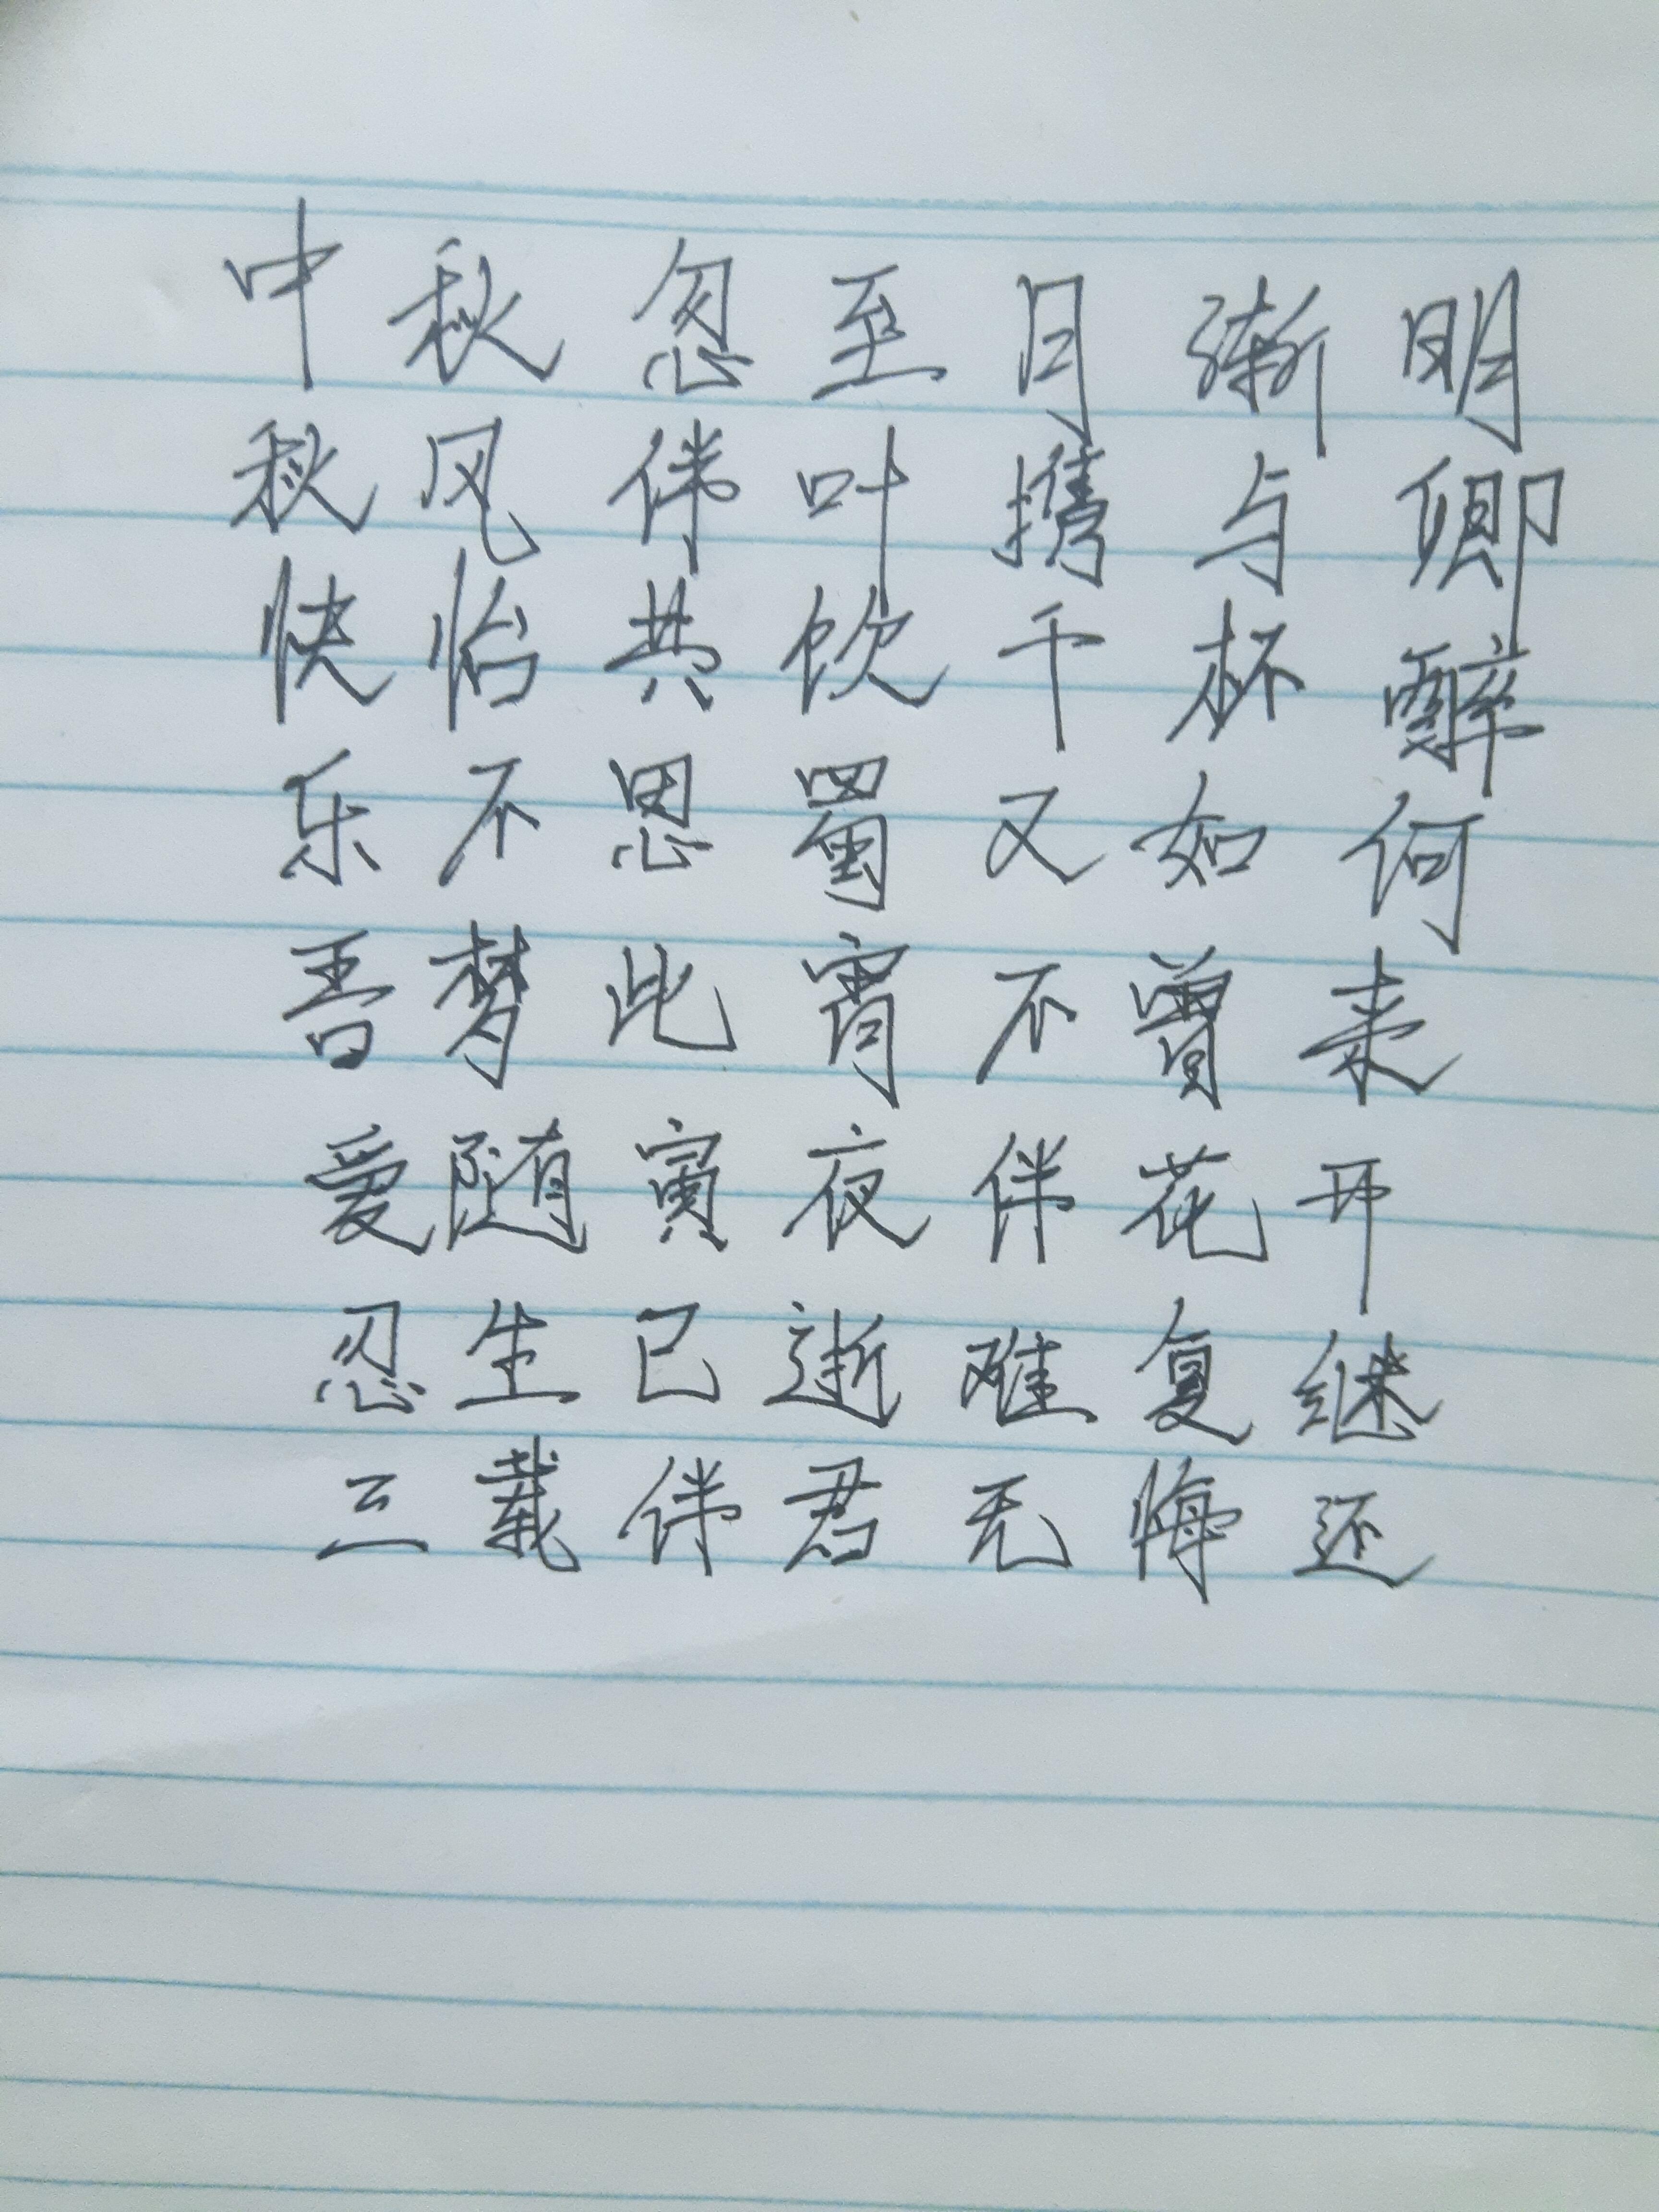 中秋忽至月渐明
秋风伴叶携与卿
快怡共饮千杯醉
乐不思蜀又如何
吾梦此宵不曾来
爱随寅夜伴花开
忍生已逝难复继
三载伴君无悔还